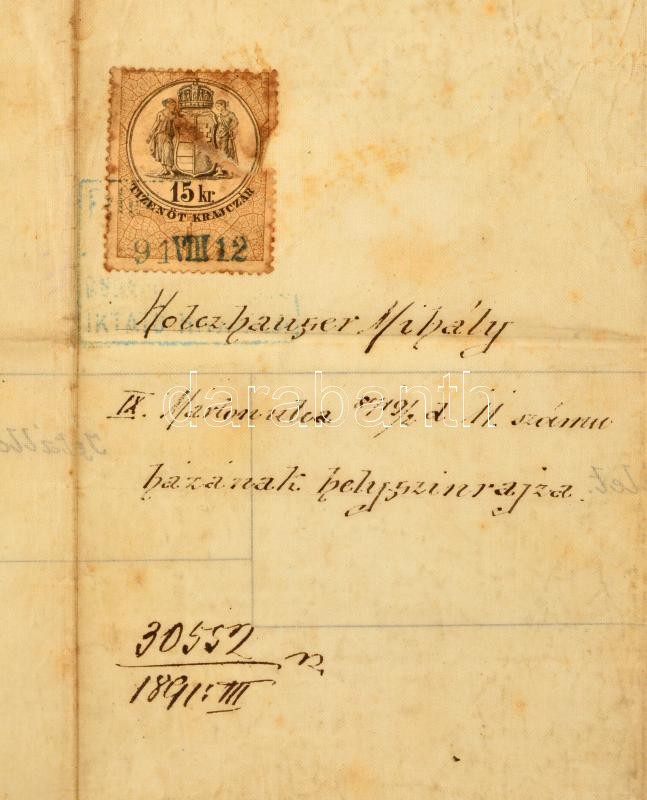 15 kr.
TIZENÖT KRAJCZÁR
91 VIII 12
IKTA
Holczhauser Mihály
darabanth
IX. Márton utca d 11 számu
házának helyszinrajza.
1891: III